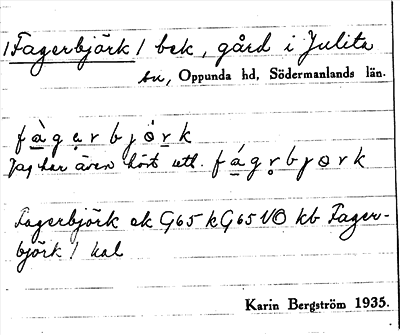 /Fagerbjörk/ bek, gård i Julita
sn, Oppunda hd, Södermanlands län.
fàgẹrbjọ̀rk
Jag har även hört utt. fágr̥bjørk
Fagerbjörk ek G65 kG65 VO kb Fager-
björk / kal
Karin Bergström 1935.